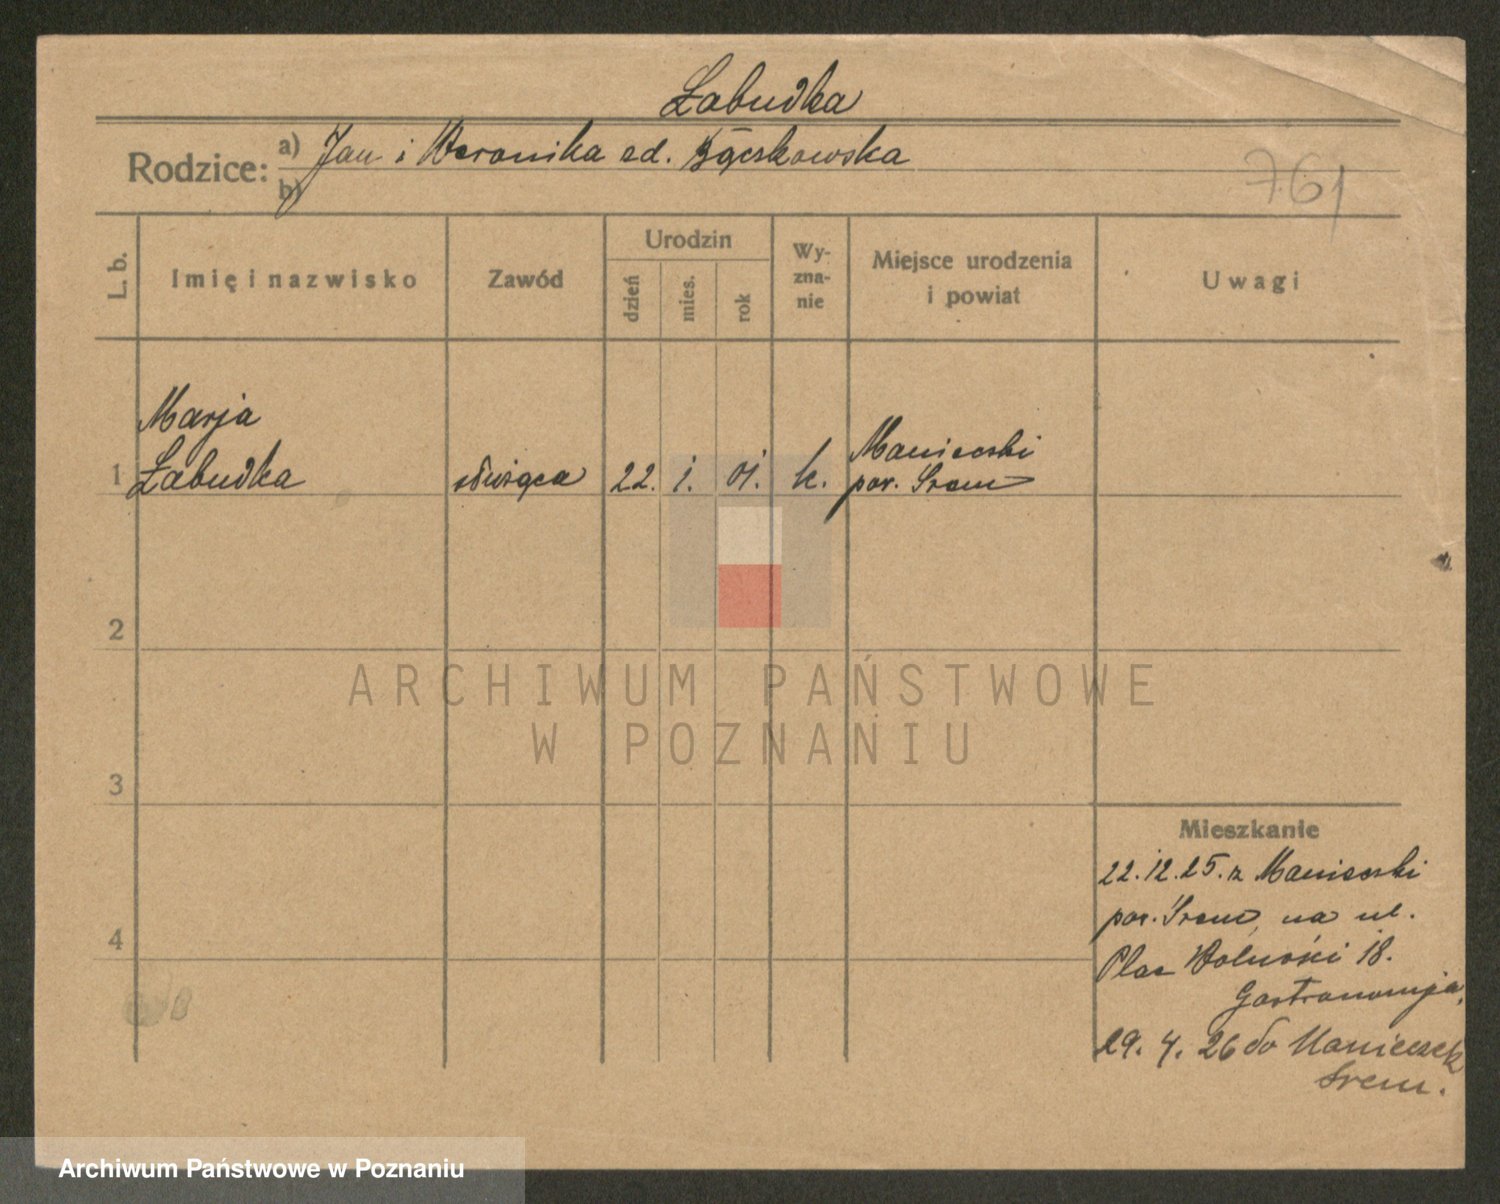 Łabudka
Rodzice: a) Jan i Weronika zd. Bączkowska
b)
761
L. b.
Imię i nazwisko
Zawód
Urodzin
dzień
mies.
rok
Wy-
zna-
nie
Miejsce urodzenia
i powiat
Uwagi
Marja
1 Łabudka służąca 22. i. 01. k. Manieczki
pow. Śrem
2
3
4
ARCHIWUM PAŃSTWOWE
W POZNANIU
Mieszkanie
22.12.25. z Manieczki
pow. Śrem, na ul.
Plac Wolności 18.
Gastronomja,
29. 4. 26 do Manieczek
Śrem.
Archiwum Państwowe w Poznaniu